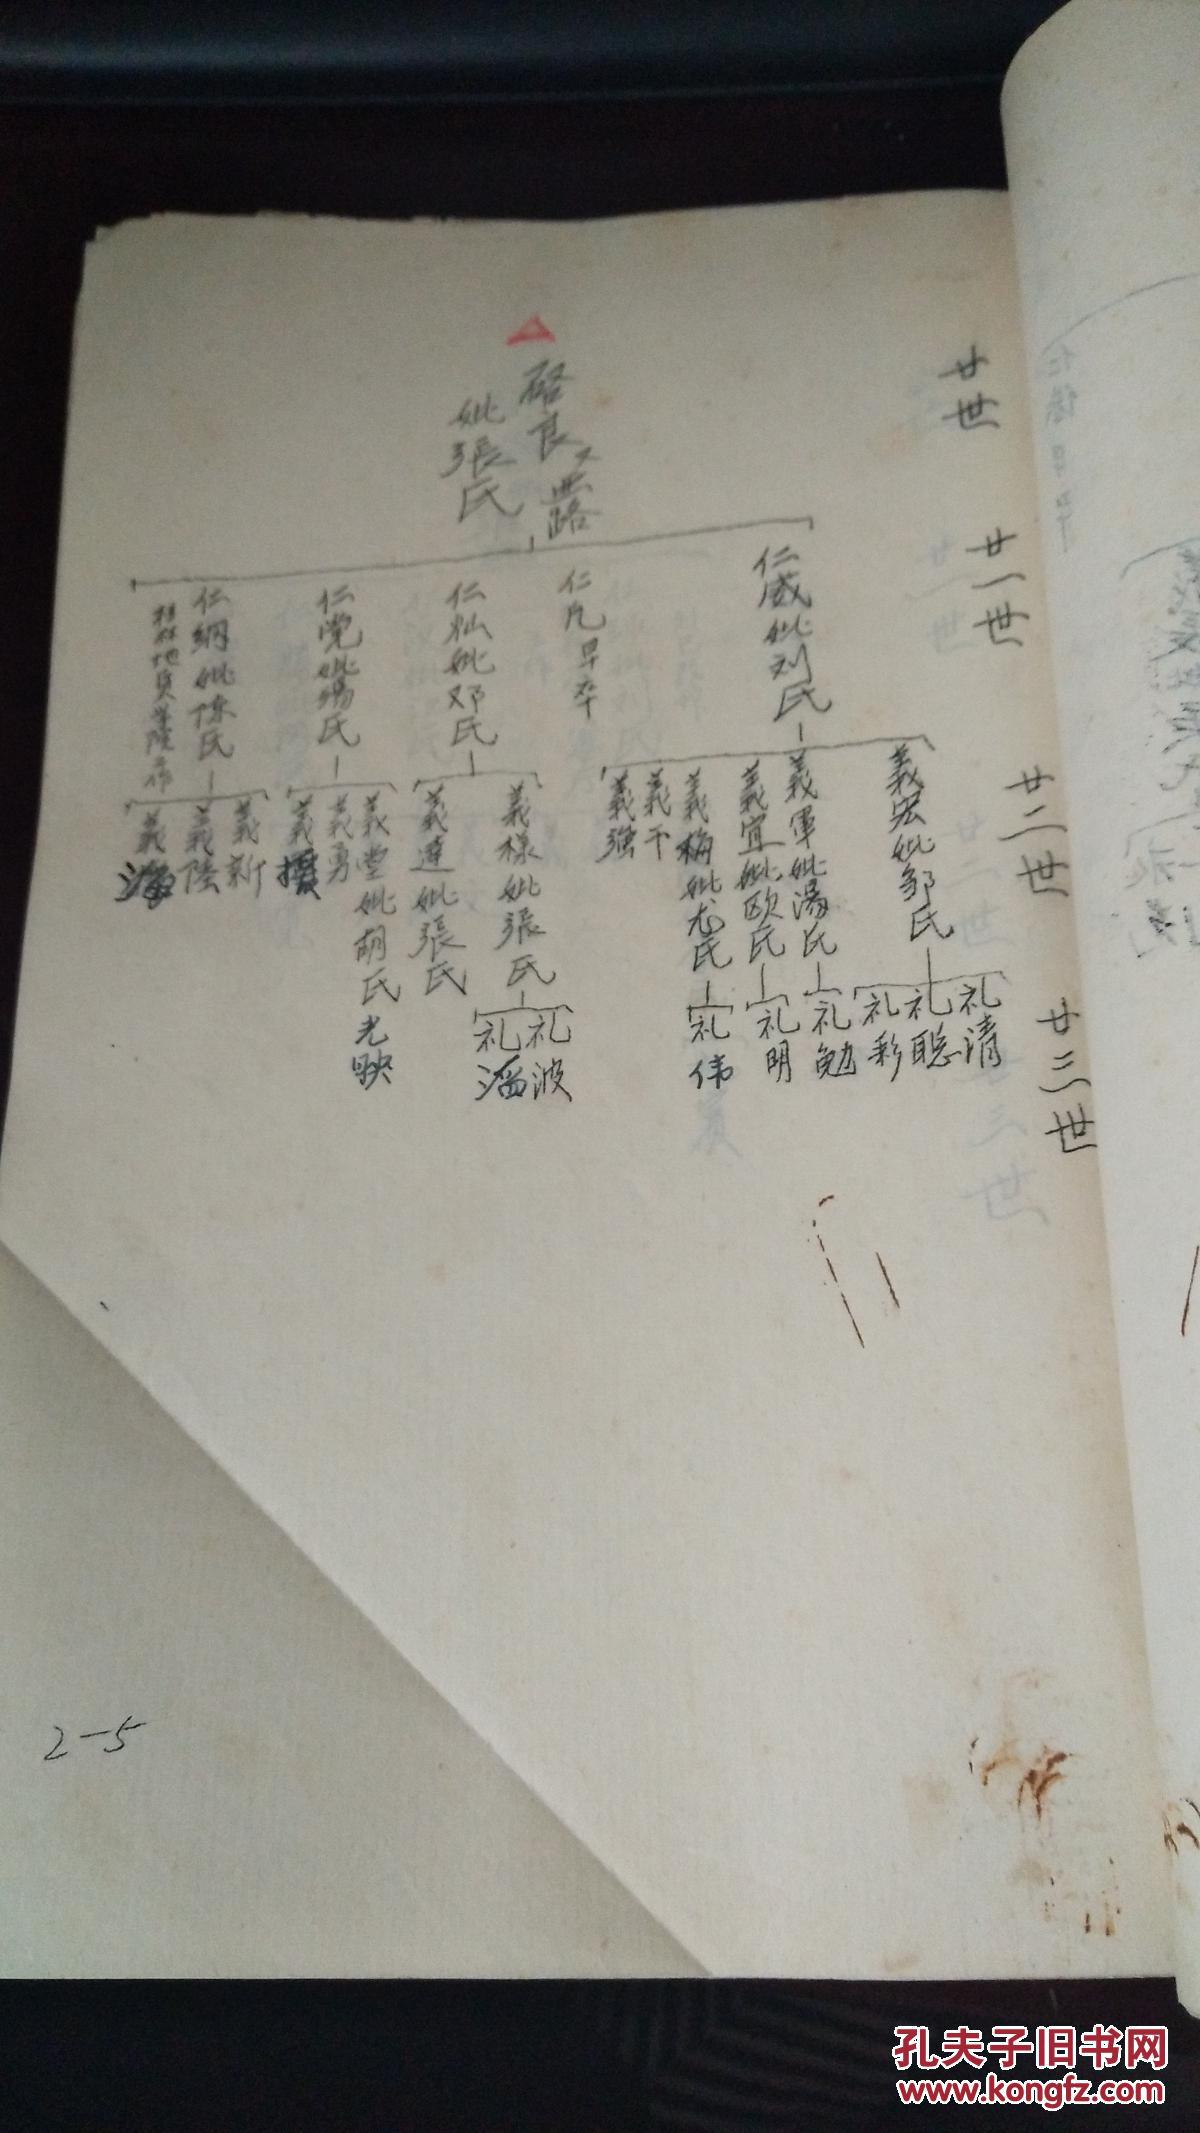 廿世
啓良又
妣張氏
廿一世
仁威妣刘氏
仁凡早卒
仁灿妣邓氏
仁党妣湯氏
仁綱妣陈氏
桂林地質学院工作
廿二世
義宏妣邹氏
義軍妣湯氏
義宜妣欧氏
義梅妣尤氏
義干
義强
義樣妣張氏
義達妣張氏
義堂妣胡氏光映
義勇
義
義新
義陸
義海
廿三世
礼清
礼聪
礼彩
礼勉
礼明
礼伟
礼波
礼滔
2-5
孔夫子旧书网
www.kongfz.com